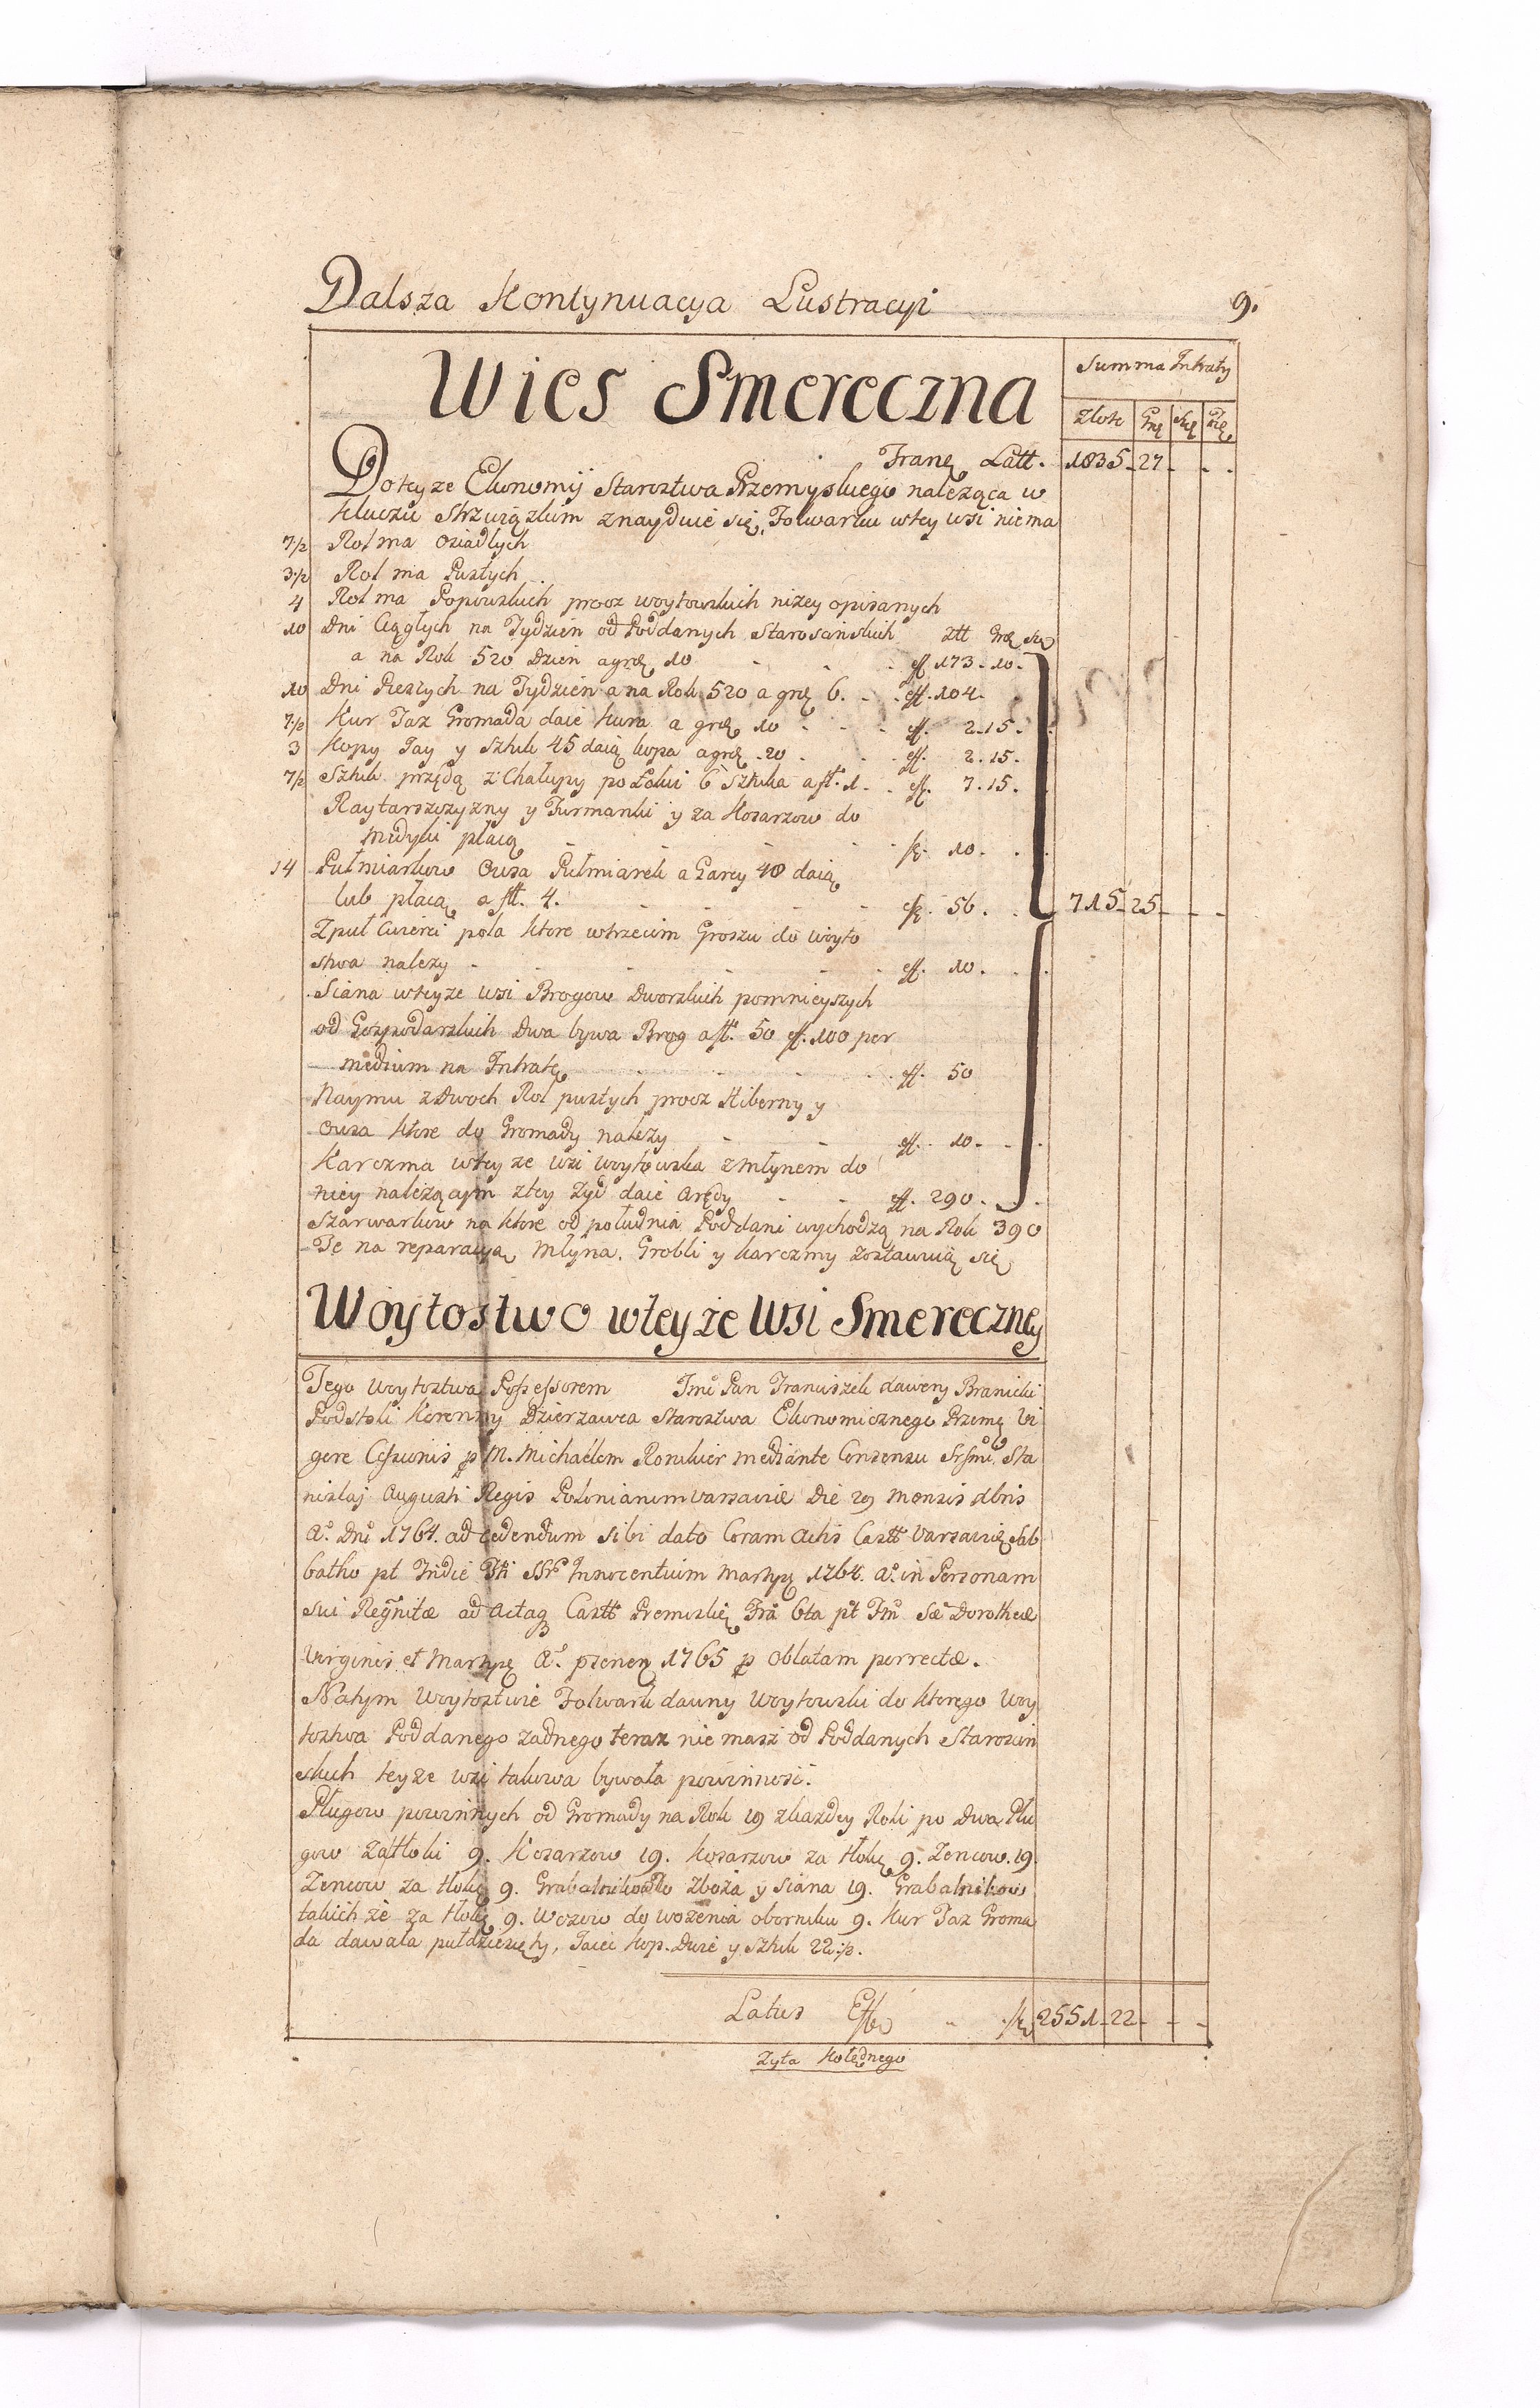 Dalsza Kontynuacya Lustracyi 9.
Wies Smereczna
Summa Intraty
Złote Grę Szę Pię
Dotey ze Ekonomij Starostwa Przemyskiego należąca w
Kluczu Strzwiąźkim znayduie się, Folwarku wtey wsi niema
Franę Latt. 1835 - 27 - - -
7/2 Rol ma osiadłych
3/2 Rol ma Pustych
4 Rol ma Popowskich procz woytowskich niżey opisanych
10 Dni Ciągłych na Tydzień od Poddanych Starosćińskich złł Grę Szę
a na Rok 520 Dzień a grę 10 - - - ff. 173. 10.
10 Dni Pieszych na Tydzień a na Rok 520 a grę 6. - - ff. 104.
7/2 Kur Jaz Gromada daie Kura a grę 10 - - - ff. 2. 15.
3 Kopy Jay y sztuk 45 daią kopa a grę 20 - - ff. 2. 15.
7/2 Sztuk przędą z Chałupy po Łokci 6 Sztuka a fł. 1. - ff. 7. 15.
Raytarszczyzny y Furmanki y za Kosarzow do
Mdyki płacą - - - - ff. 10. - -
14 Pułmiarkow Owsa Pułmiarek a Garcy 48 daią
lub płacą a fł. 4. - - - - ff. 56. - 715 - 25 - - -
Zpuł Cwierci pola ktore wtrzecim Groszu do Woyto
stwa należy - - - - ff. 10. - -
Siana wteyze wsi Brogow Dworskich pomnieyszych
od Gospodarskich Dwa bywa Brog a fł. 50 ff. 100 per
medium na Intratę - - - ff. 50
Naymu z Dwoch Rol pustych procz Hiberny y
Owsa ktore do Gromady należy - - ff. 10. - -
Karczma wtey ze wsi woytowska z młynem do
niey należącym ztey Zyd daie Arędy - - ff. 290. - -
Szarwarkow na ktore od południa Poddani wychodzą na Rok 390
Te na reparacyą Młyna, Grobli y karczmy zostawuią się
Woytostwo wtey że Wsi Smereczney
Tego Woytostwa Possessorem Jmć Pan Franciszek Xawery Branicki
Podstoli Koronny Dzierżawca Starostwa Ekonomicznego Przemę Vi
gore Cessionis p M. Michaëlem Ronikier mediante Consensu Srsmi Sta
nislaj Augusti Regis Polonianum Varsaviæ Die 29 Mensis Xbris
Ao. Dni 1764. ad cedendum sibi dato Coram Actis Castr Varsavię Sab
batho pt Indie Ftti SSr Innocentium Martyrę 1764. Ao. in Personam
sui Regnitæ ad Actaq Castr Premislię Fria 6ta pt Fm Sæ Dorotheæ
Virginis et Martyrę Ao. præsenę 1765 p Oblatam porrectæ.
Natym Woytostwie Folwark dawny Woytowski do ktorego Woy
tostwa Poddanego zadnego teraz nie masz od Poddanych Starosciń
skich teyze wsi takowa bywała powinnosć.
Pługow powinnych od Gromady na Rok 19 zkażdey Roli po Dwa Płu
gow Zatłoki 9. Kosarzow 19. Kosarzow za tłokę 9. Zencow. 19.
Zencow za tłokę 9. Grabalnikow do zboża y siana 19. Grabalnikow
takich że za tłokę 9. Wozow do wożenia obornika 9. Kur Jaz Groma
da dawała pułdziesięty, Jaiec kop. Dwie y Sztuk 22:/2.
Latus Effbo - ff. 2551 - 22 - - -
Zyta Kolędnego